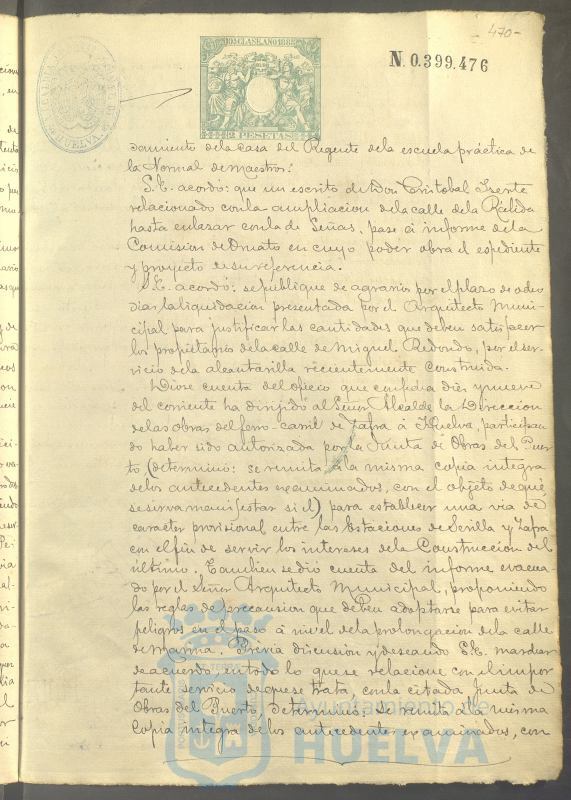 470-
10ª CLASE AÑO 1888
N. 0.399.476
2 PESETAS
HUELVA
damiento de la Casa del Regente de la escuela práctica de
la Normal de Maestros.
S.E. acordó: que un escrito de Don Cristobal
relacionado con la ampliacion de la calle de la Rabida
hasta enlazar con la de Señas, pase á informe de la
Comision de Ornato en cuyo poder obra el espediente
y proyecto de su referencia.
S.E. acordó: se publique de agravios por el plazo de ocho
dias la liquidacion presentada por el Arquitecto Muni-
cipal para justificar las cantidades que deben satisfacer
los propietarios de la calle de Miguel Redondo, por el ser-
vicio de la alcantarilla recientemente construida.
Diose cuenta del oficio que con fecha diez y nueve
del corriente ha dirijido al Señor Alcalde la Direccion
de las obras del ferro-carril de Zafra á Huelva, participan
do haber sido autorizada por la Junta de Obras del Puer-
to (determinó: se remita á la misma copia integra
de los antecedentes examinados, con el objeto de que
se sirva manifestar si el) para establecer una via de
caracter provisional entre las Estaciones de Sevilla y Zafra
con el fin de servir los intereses de la Construccion del
último. Tambien se dió cuenta del informe evacua-
do por el Señor Arquitecto Municipal, proponiendo
las reglas de precaucion que deben adoptarse para evitar
peligros en el paso á nivel de la prolongacion de la calle
de Marina. Previa discusion y deseando S.E. marchar
de acuerdo en todo lo que se relacione con el impor-
tante servicio de que se trata, con la citada Junta de
Obras del Puerto, determinó: se remita á la misma
Copia integra de los antecedentes examinados, con
Ayuntamiento de
HUELVA